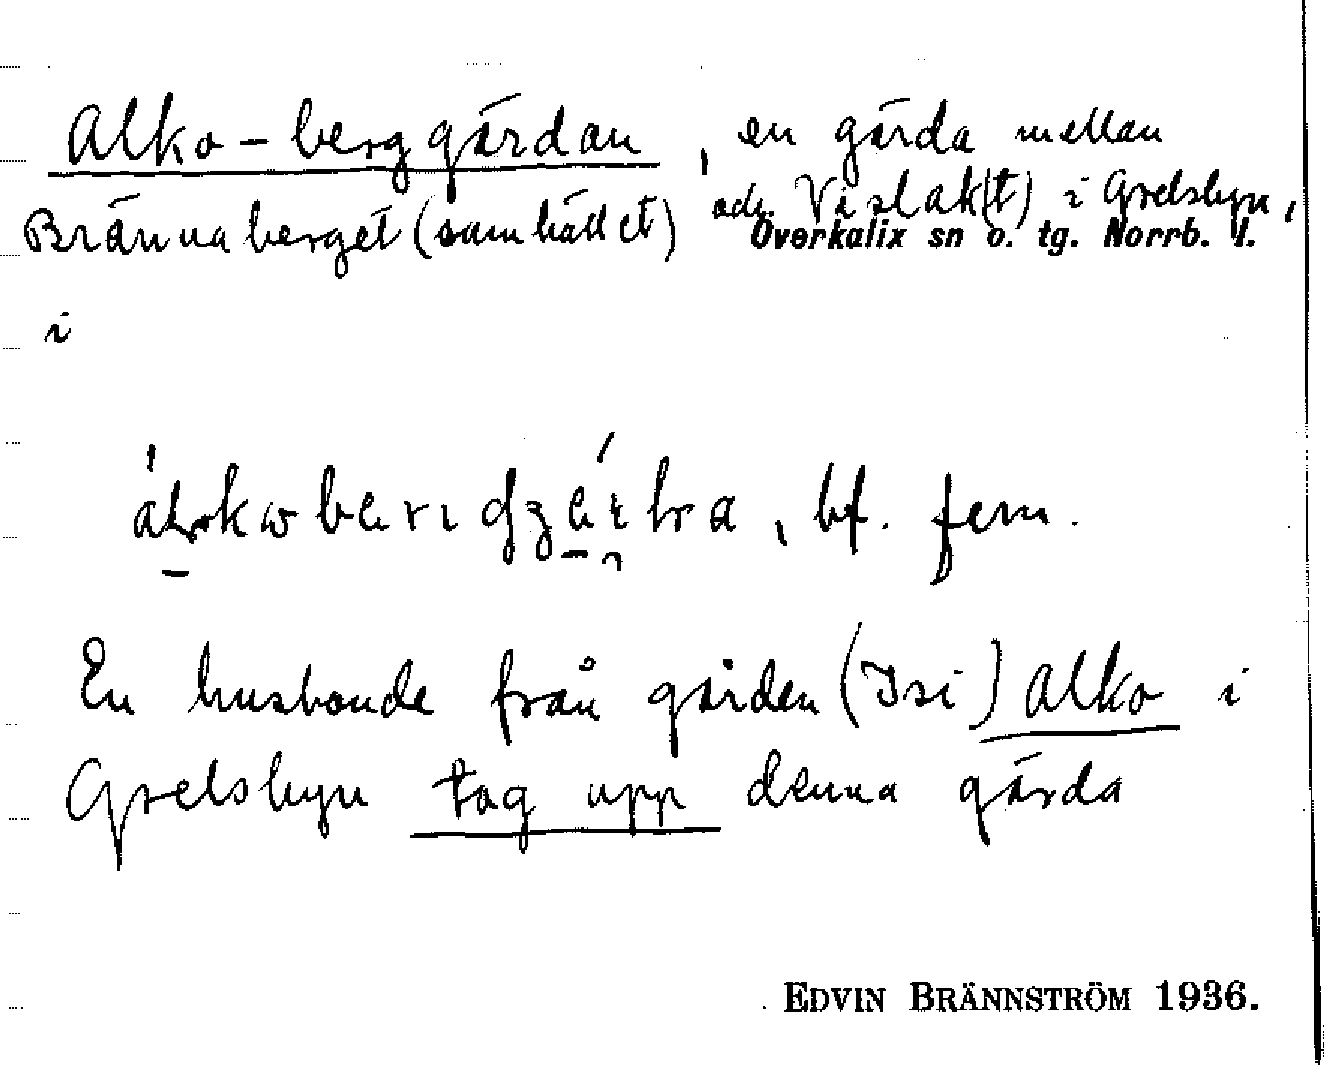 Alko-berggärdan, en gärda mellan
Brännaberget (samhället) och Vislak(t) i Grelsbyn,
Överkalix sn o. tg. Norrb. l.
i
bf. fem.
En husbonde från gården (Isi) Alko i
Grelsbyn tog upp denna gärda
EDVIN BRÄNNSTRÖM 1936.